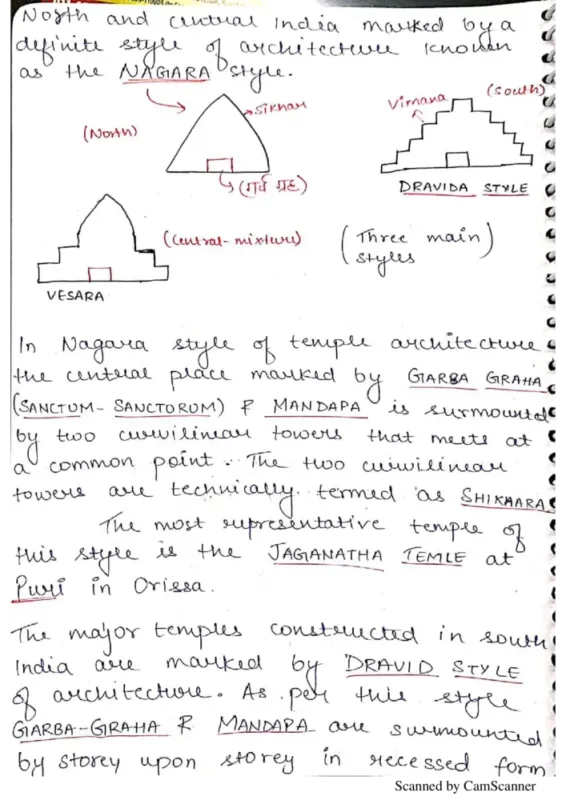 North and central India marked by a
definite style of architecture known
as the NAGARA style.
(North)
Sikhar
(गर्व ग्रह)
Vimana
(South)
DRAVIDA STYLE
(Central-mixture)
VESARA
(Three main
styles)
In Nagara style of temple architecture
the central place marked by GARBA GRAHA
(SANCTUM-SANCTORUM) & MANDAPA is surmounted
by two curvilinear towers that meets at
a common point. The two curvilinear
towers are technically termed as SHIKHARA
The most representative temple of
this style is the JAGANATHA TEMLE at
Puri in Orissa.
The major temples constructed in south
India are marked by DRAVID STYLE
of architecture. As per this style
GARBA-GRAHA & MANDAPA are surmounted
by storey upon storey in recessed form
Scanned by CamScanner